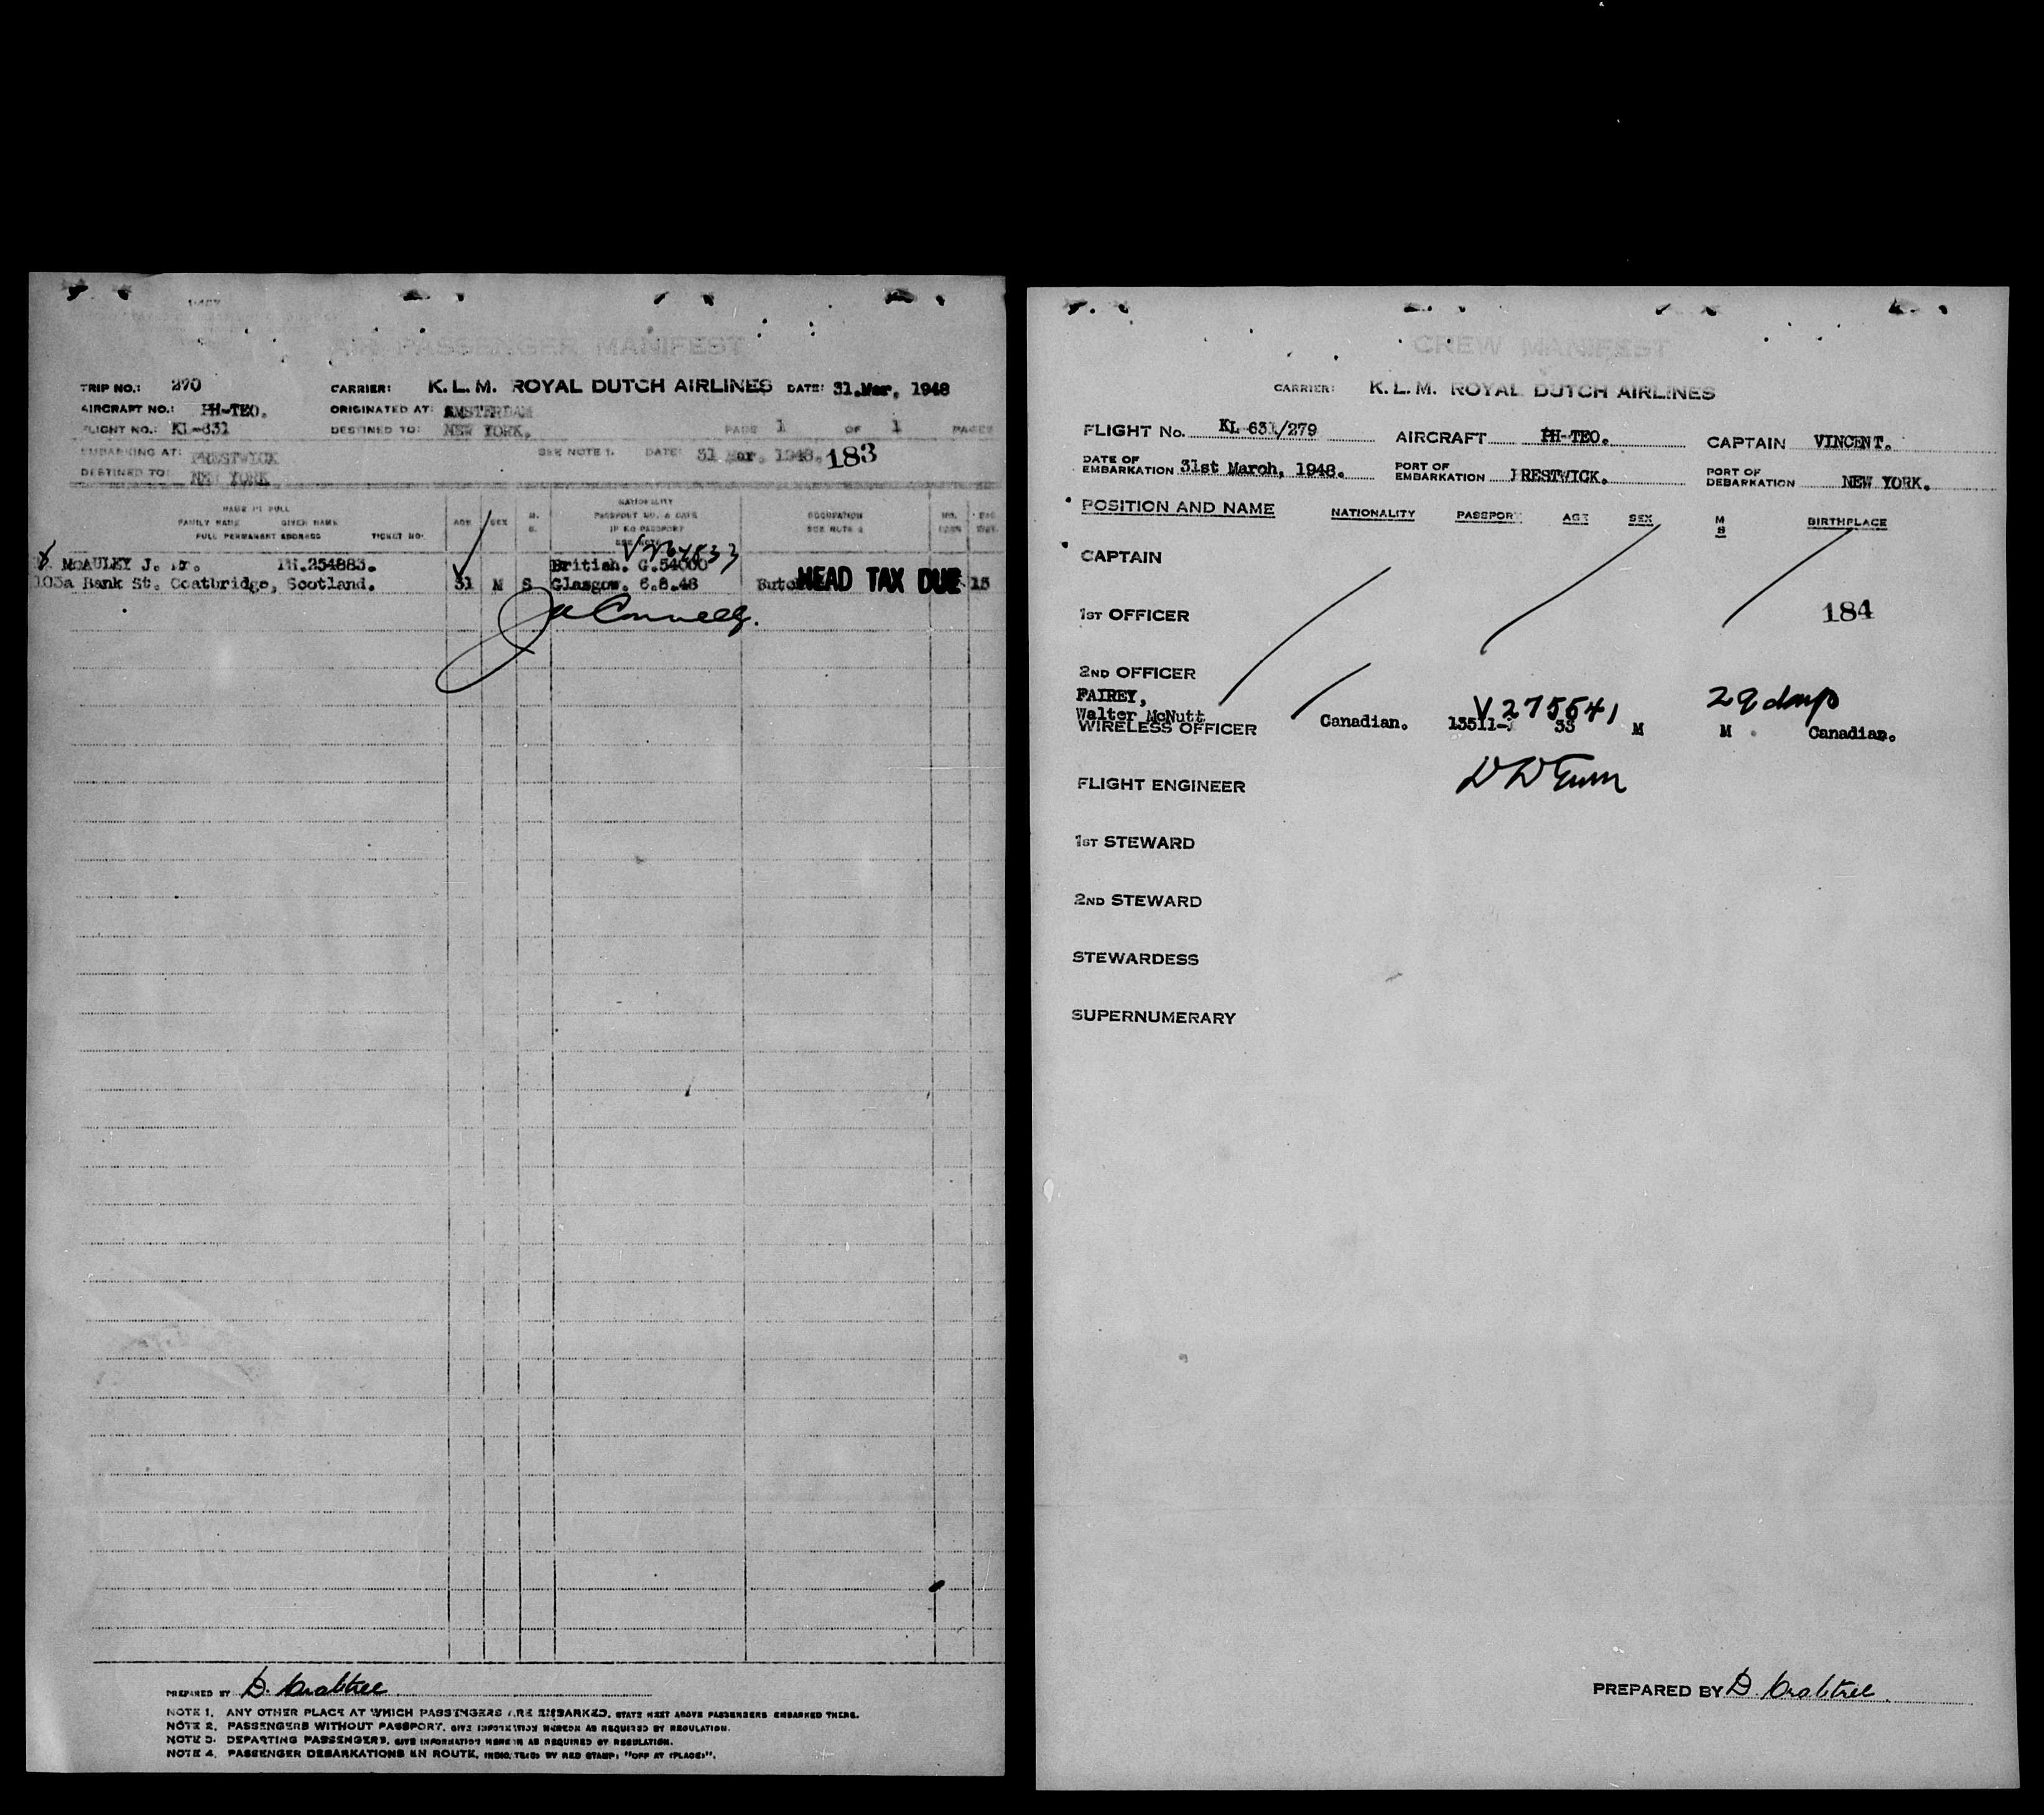 AIR PASSENGER MANIFEST
TRIP NO.: 270 CARRIER: K.L.M. ROYAL DUTCH AIRLINES DATE: 31.Mar, 1948
AIRCRAFT NO.: PH-TEO. ORIGINATED AT: AMSTERDAM
FLIGHT NO.: KL-631 DESTINED TO: NEW YORK. PAGE 1 OF 1 PAGES
EMBARKING AT: PRESTWICK SEE NOTE 1. DATE: 31 Mar, 1948. 183
DESTINED TO: NEW YORK
NAME IN FULL NATIONALITY
FAMILY NAME GIVEN NAME AGE SEX M. PASSPORT NO. & DATE OCCUPATION NO.
FULL PERMANENT ADDRESS TICKET NO. S. IF NO PASSPORT SEE NOTE 2
SEE NOTE
McAULEY J. Mr. PH.254883. British. G.54000
103a Bank St. Coatbridge, Scotland. 31 M S Glasgow. 6.8.48 HEAD TAX DUE 15
PREPARED BY D. Crabtree
NOTE 1. ANY OTHER PLACE AT WHICH PASSENGERS ARE EMBARKED, STATE NEXT ABOVE PASSENGERS EMBARKED THERE.
NOTE 2. PASSENGERS WITHOUT PASSPORT, GIVE INFORMATION HEREON AS REQUIRED BY REGULATION.
NOTE 3. DEPARTING PASSENGERS, GIVE INFORMATION HEREIN AS REQUIRED BY REGULATION.
NOTE 4. PASSENGER DEBARKATIONS EN ROUTE, INDICATED BY RED STAMP: "OFF AT (PLACE)".
CREW MANIFEST
CARRIER: K.L.M. ROYAL DUTCH AIRLINES
FLIGHT No. KL 631/279 AIRCRAFT PH-TEO. CAPTAIN VINCENT.
DATE OF EMBARKATION 31st March, 1948. PORT OF EMBARKATION PRESTWICK. PORT OF DEBARKATION NEW YORK.
POSITION AND NAME NATIONALITY PASSPORT AGE SEX M S BIRTHPLACE
CAPTAIN
1ST OFFICER 184
2ND OFFICER
FAIREY, V275541 29 days
Walter McNutt
WIRELESS OFFICER Canadian. 13511- 33 M M Canadian.
FLIGHT ENGINEER
1ST STEWARD
2ND STEWARD
STEWARDESS
SUPERNUMERARY
PREPARED BY D. Crabtree